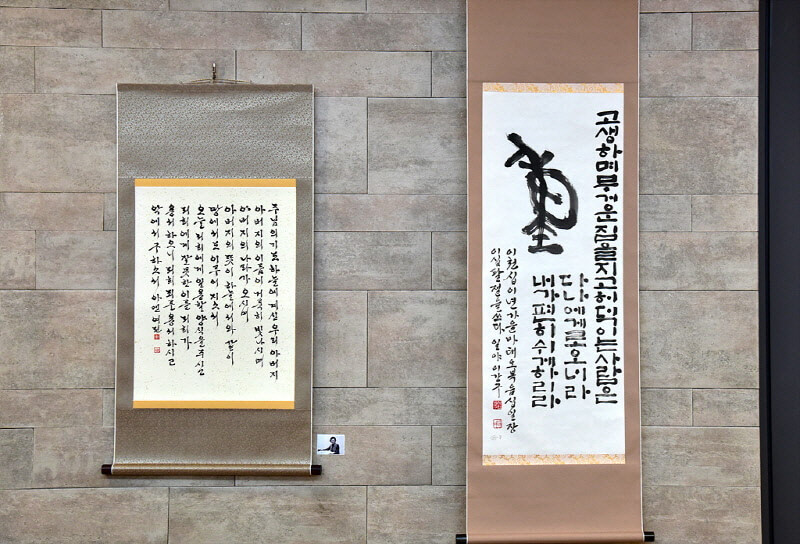 주님의기도 하늘에계신 우리 아버지
아버지의 이름이 거룩히 빛나시며
아버지의 나라가 오시며
아버지의 뜻이 하늘에서와 같이
땅에서도 이루어지소서
오늘 저희에게 일용할 양식을 주시고
저희에게 잘못한 이를 저희가
용서하오니 저희 죄를 용서하시고
악에서 구하소서 아멘
고생하며 무거운 짐을 지고 허덕이는 사람은
다 나에게로 오너라
내가 편히 쉬게 하리라
이천십이년 가을 마태오복음 십일장
이십팔절을 쓰다 일야